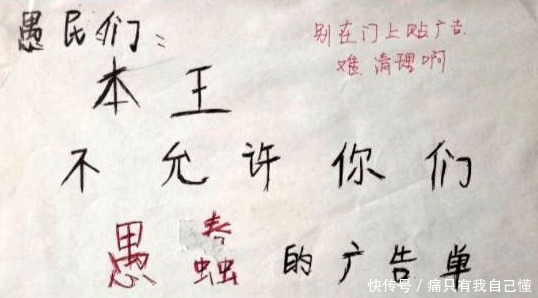 愚民们：
别在门上贴广告
难清理啊
本王
不允许你们
愚蠢的广告单
快传号/痛只有我自己懂